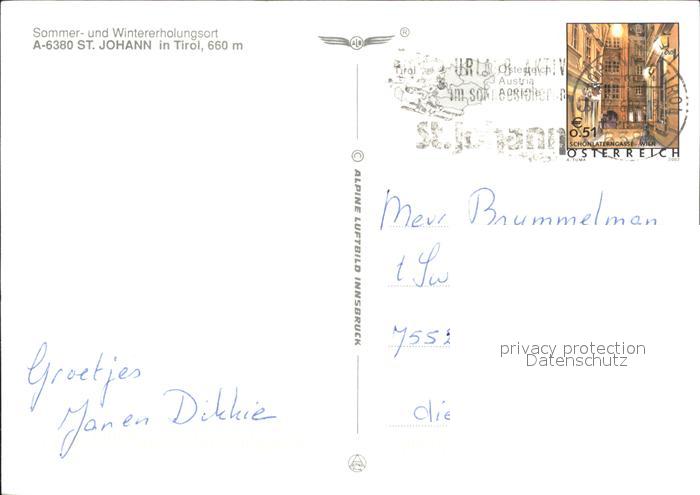 Sommer- und Wintererholungsort
A-6380 ST. JOHANN in Tirol, 660 m
®
Tirol
Österreich
Austria
€
0.51
SCHÖNLATERNGASSE - WIEN
ÖSTERREICH
A. TUMA 2002
© ALPINE LUFTBILD INNSBRUCK
Mevr Brummelman
t Sw
7552
privacy protection
Datenschutz
die
Groetjes
Jan en Dikkie